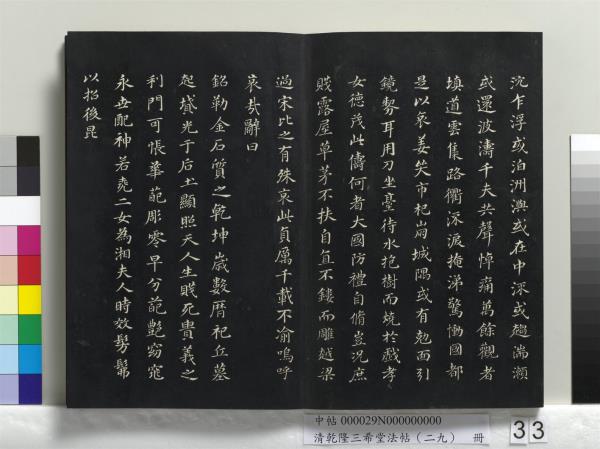 沈乍浮或泊洲嶼或在中流或趨湍瀨
或還波濤千夫共聲悼痛萬餘觀者
填道雲集路衢流淚掩涕驚慟國都
是以哀姜哭市杞崩城隅或有剋面引
鏡剺耳用刀坐臺待水抱樹而燒於戲孝
女德茂此儔何者大國防禮自脩豈況庶
賤露屋草茅不扶自直不鏤而雕越梁
過宋比之有殊哀此貞厲千載不渝嗚呼
哀哉辭曰
銘勒金石質之乾坤歲數曆祀丘墓
起墳光于后土顯照天人生賤死貴義之
利門何悵華葩彫零早分葩艷窈窕
永世配神若堯二女為湘夫人時效髣髴
以招後昆
中帖 000029N000000000
清乾隆三希堂法帖(二九) 冊
33